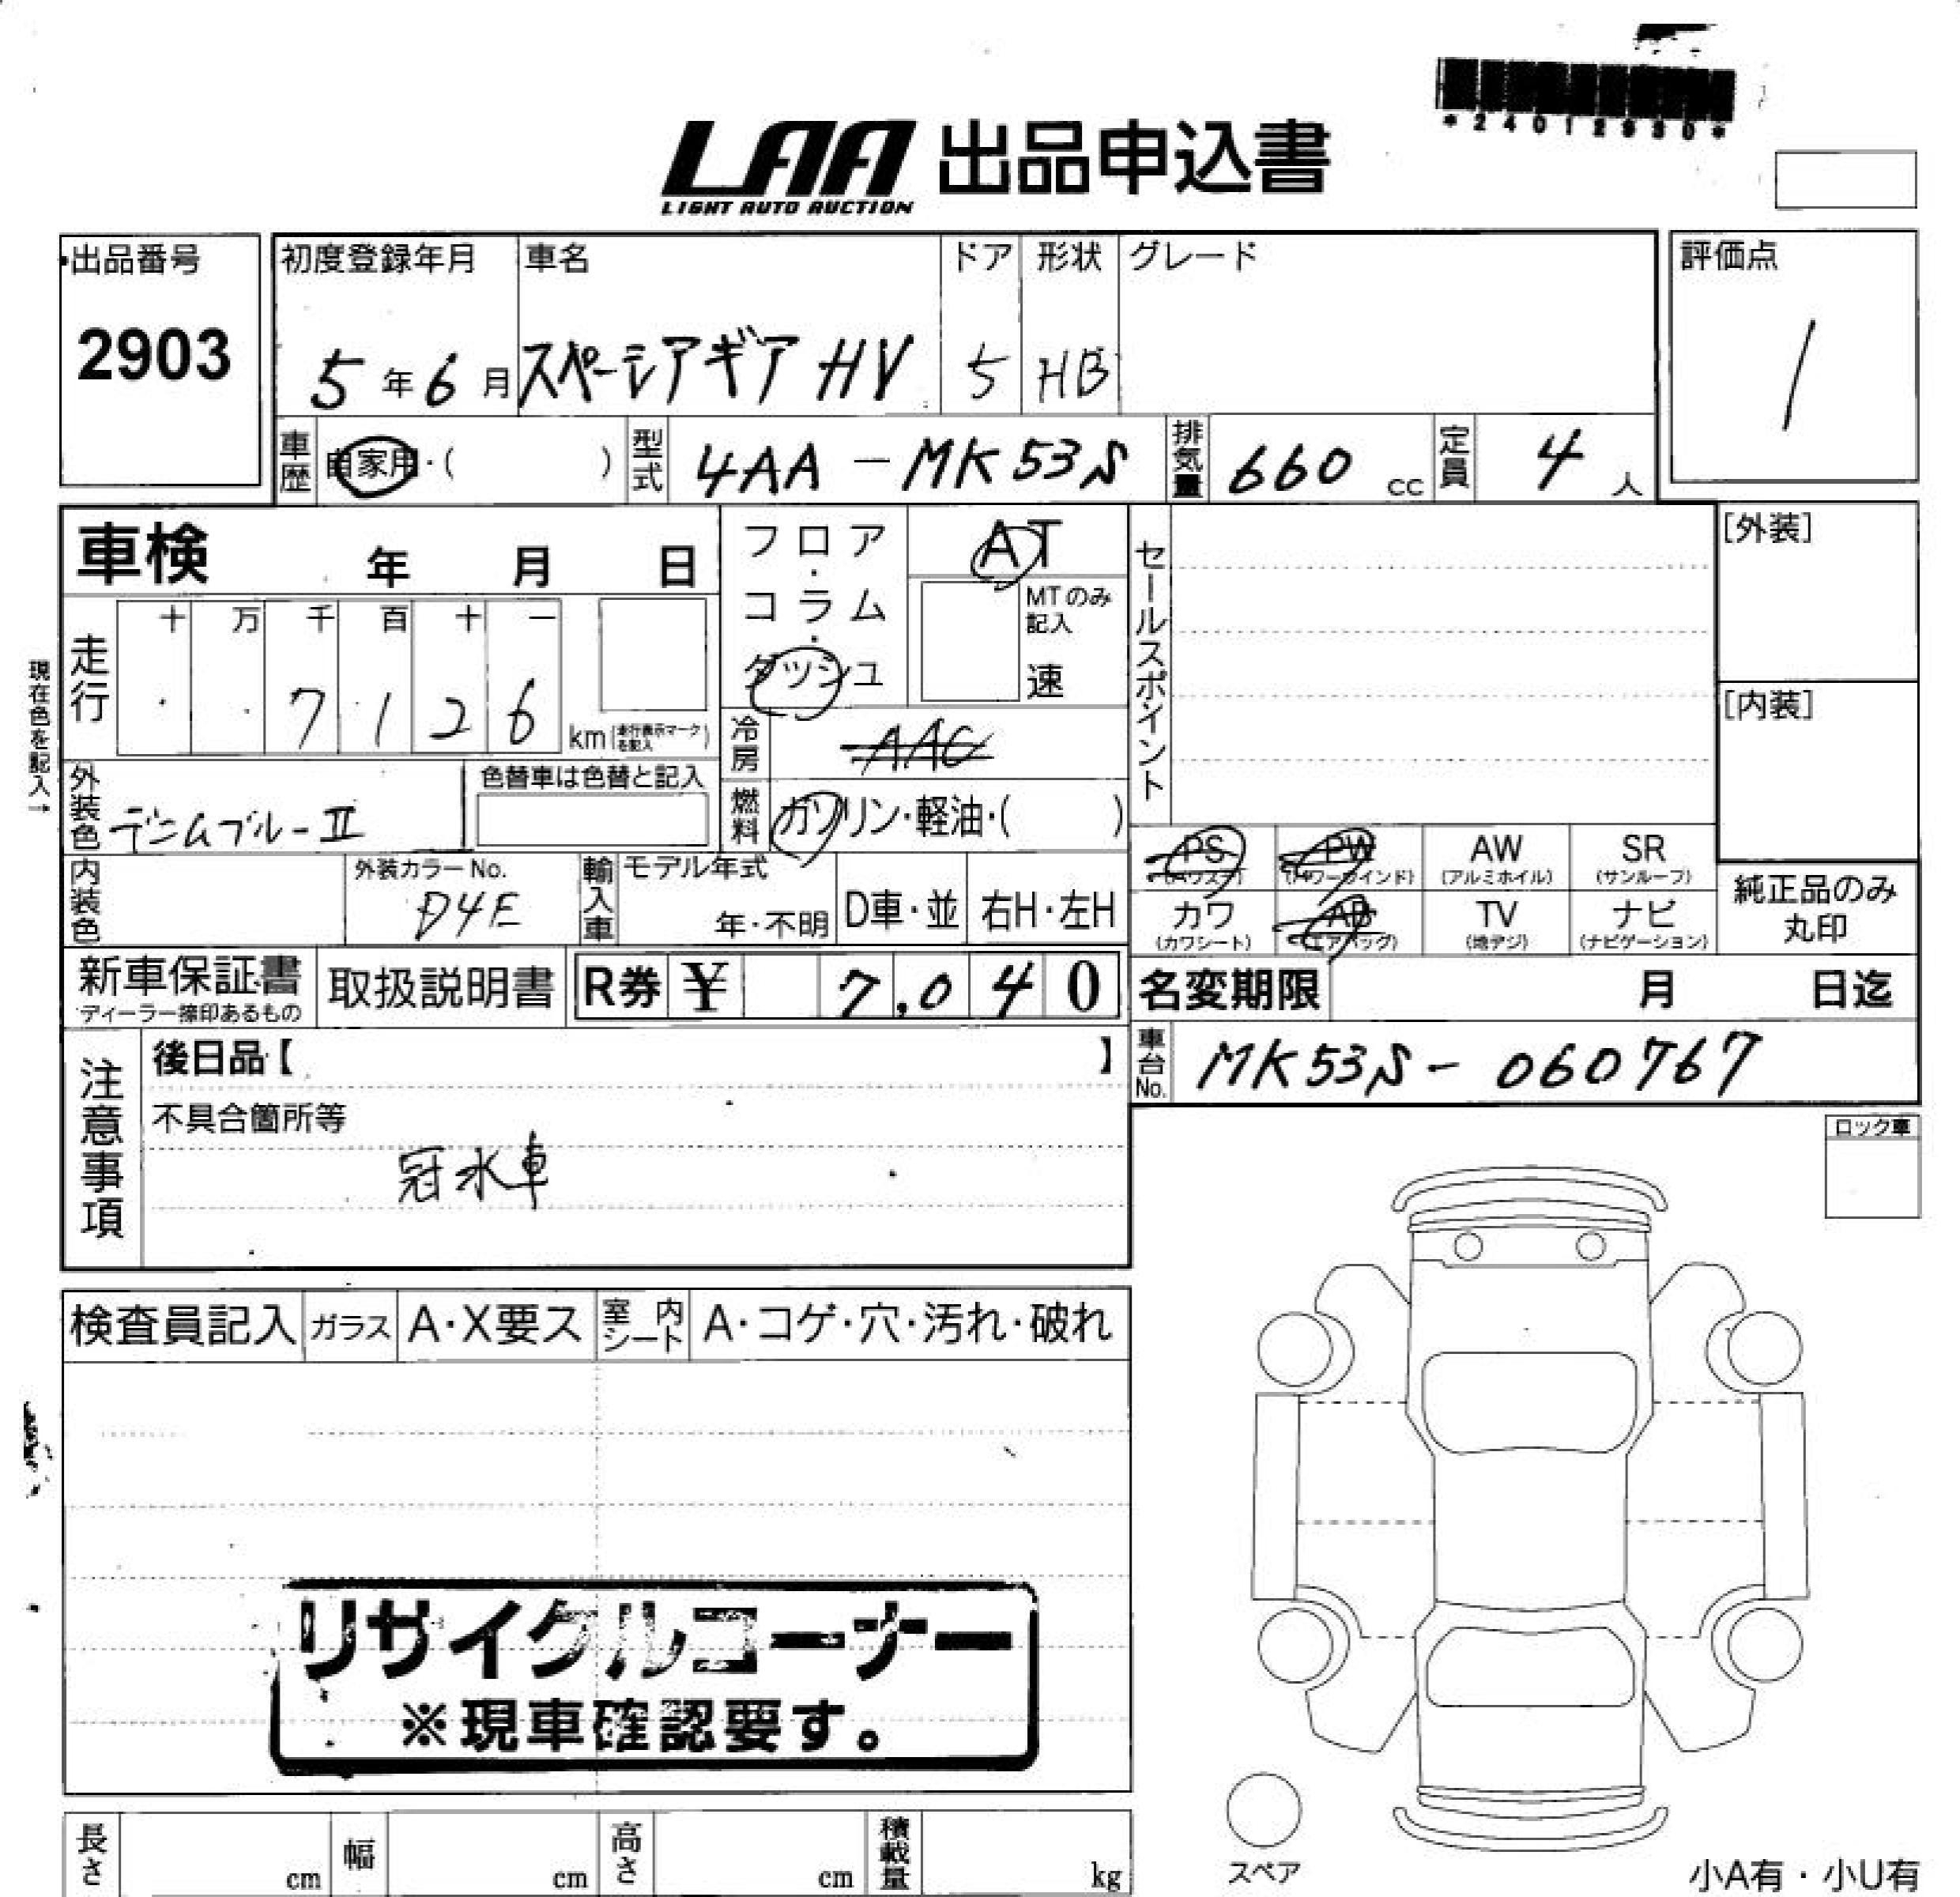 *24012930*
LAA 出品申込書
LIGHT AUTO AUCTION
出品番号 2903
初度登録年月 5年6月
車名 スペーシアギア HV
ドア 5
形状 HB
グレード
評価点 1
車歴 自家用・( )
型式 4AA-MK53S
排気量 660 cc
定員 4 人
車検 年 月 日
フロア・コラム・ダッシュ
AT
MTのみ記入
速
セールスポイント
[外装]
[内装]
現在色を記入→
走行 十 万 千 百 十 一
7 1 2 6 km (走行表示マークを記入)
冷房 AAC
外装色 デニムブルーII
色替車は色替と記入
燃料 ガソリン・軽油・( )
PS (パワステ)
PW (パワーウインド)
AW (アルミホイル)
SR (サンルーフ)
内装色
外装カラーNo. D4E
輸入車 モデル年式 年・不明
D車・並
右H・左H
カワ (カワシート)
AB (エアバッグ)
TV (地デジ)
ナビ (ナビゲーション)
純正品のみ丸印
新車保証書
ディーラー捺印あるもの
取扱説明書
R券 ¥ 7,040
名変期限 月 日迄
車台No. MK53S-060767
注意事項
後日品【 】
不具合箇所等
冠水車
ロック車
検査員記入 ガラス A・X要ス 室内シート A・コゲ・穴・汚れ・破れ
リサイクルコーナー
※現車確認要す。
長さ cm 幅 cm 高さ cm 積載量 kg
スペア
小A有・小U有